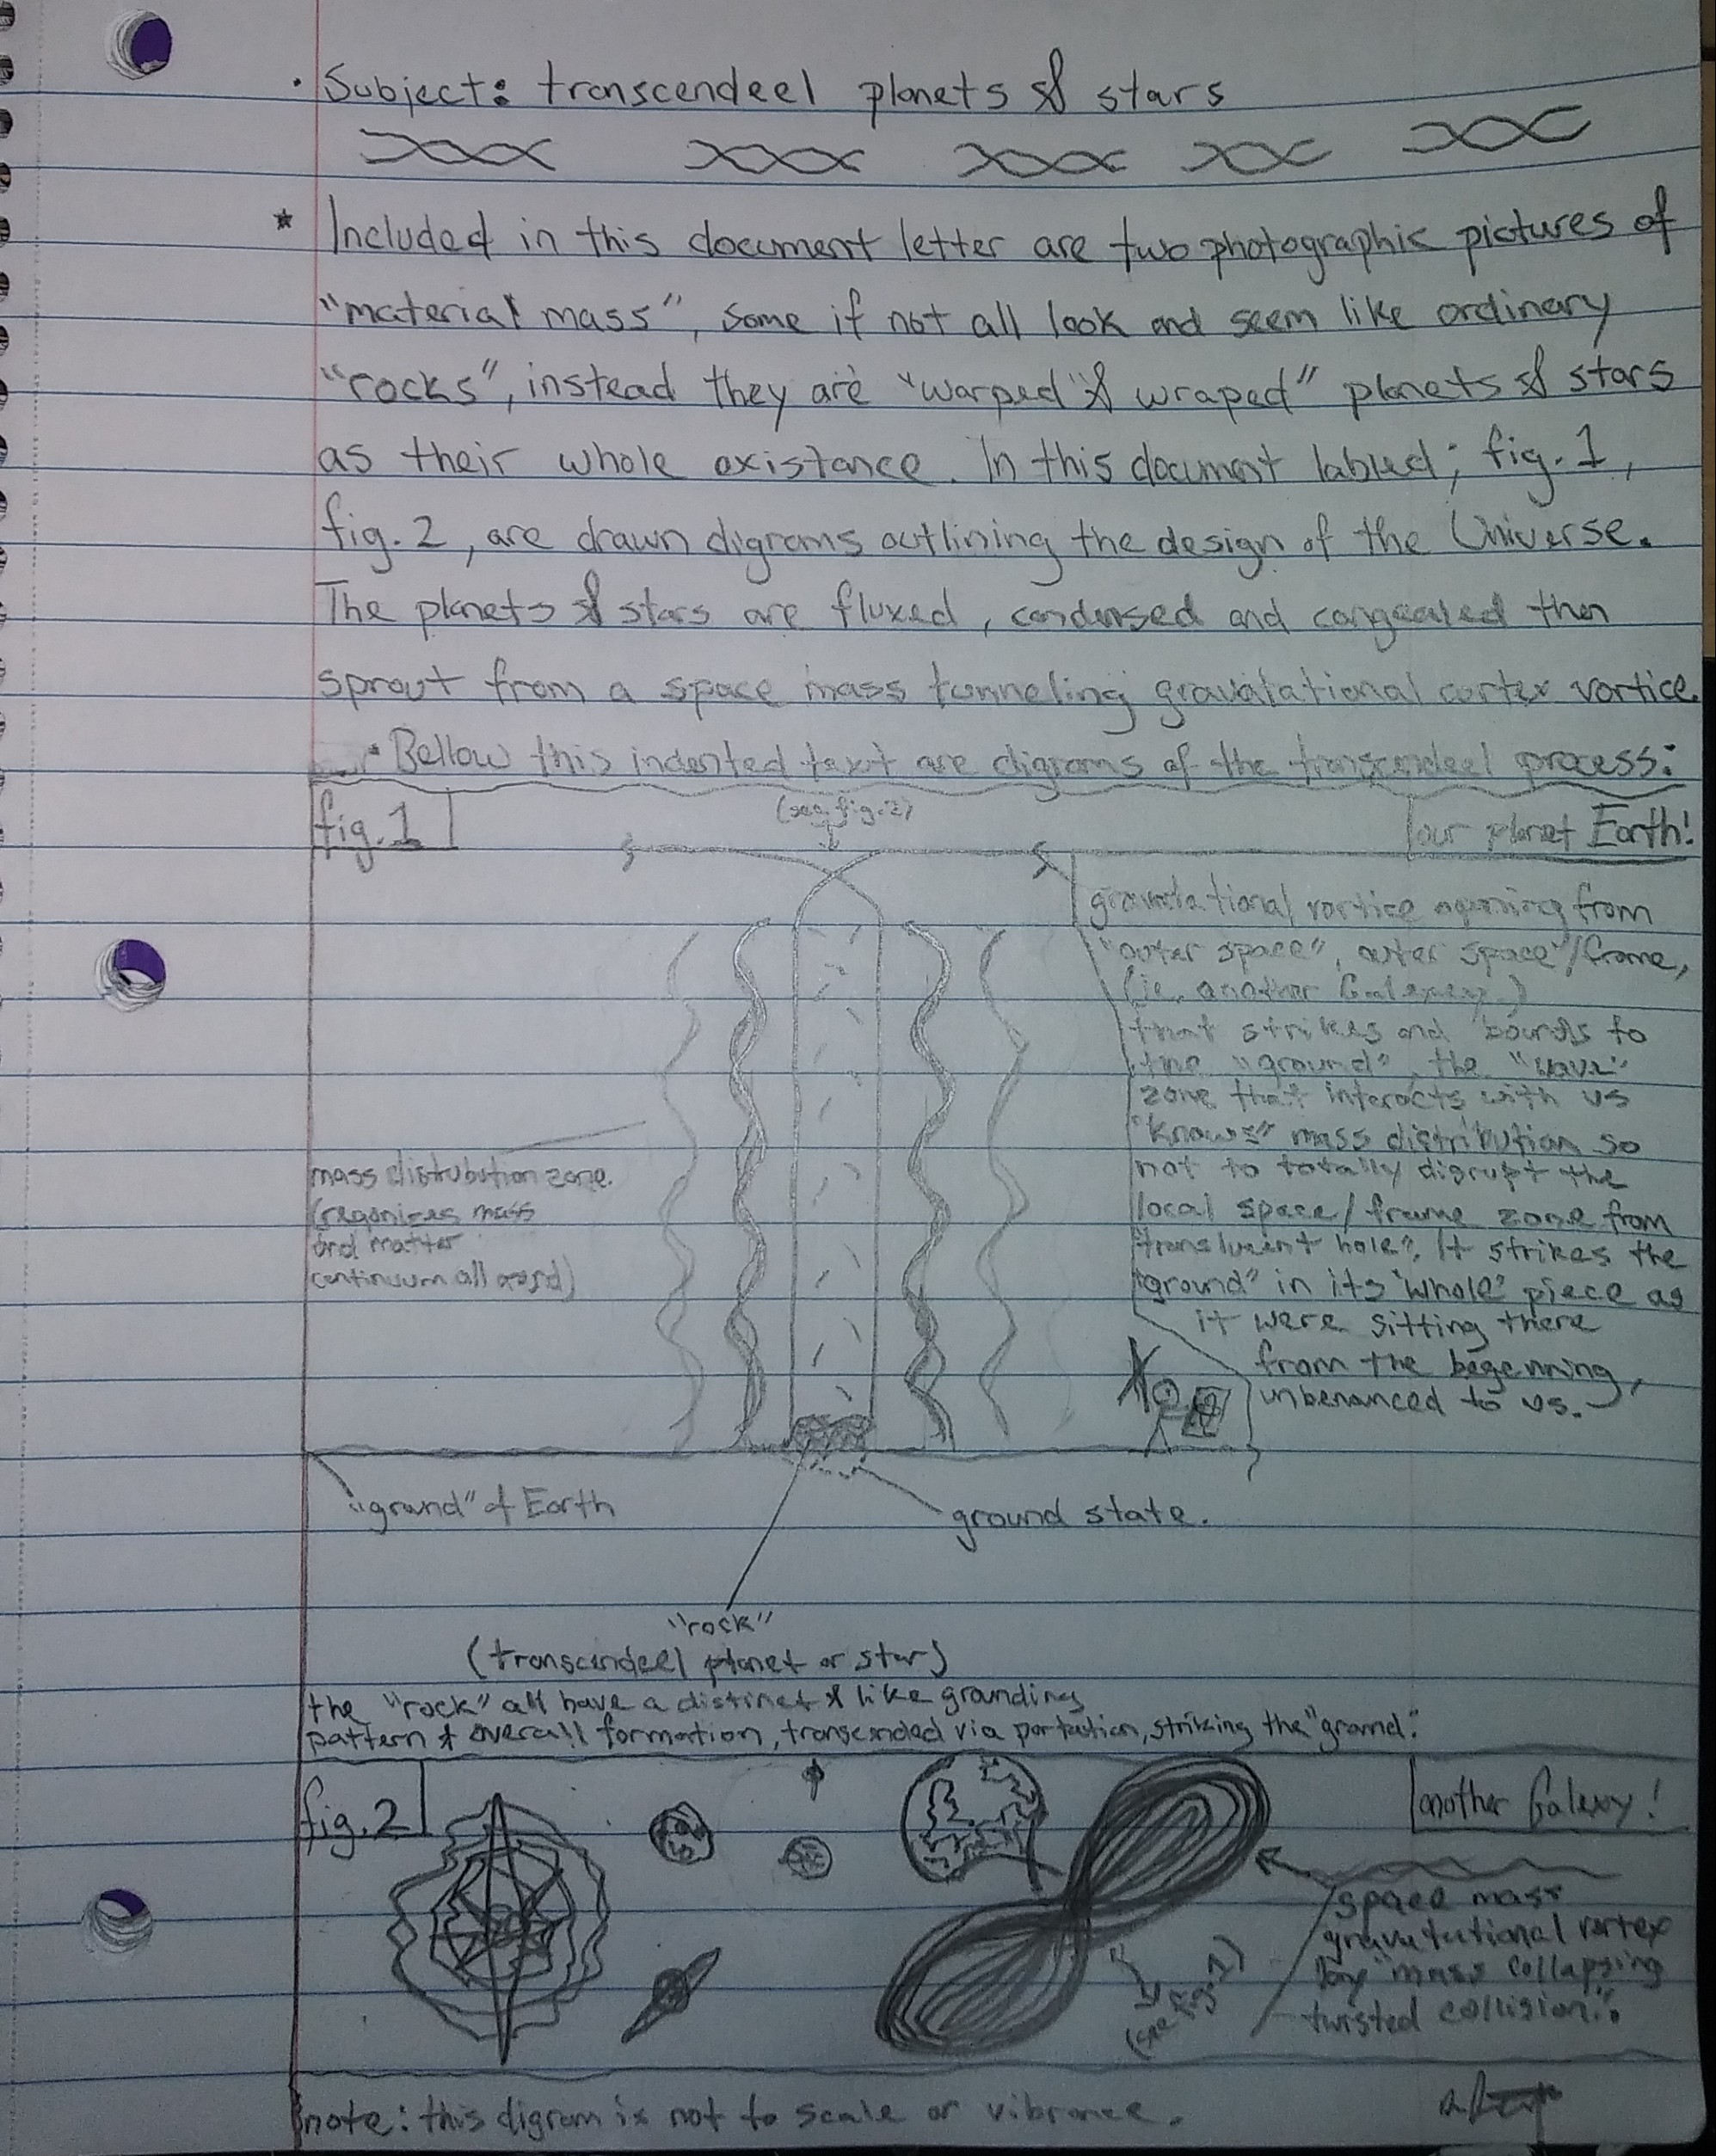 · Subject: transcendeel planets & stars
* Included in this document letter are two photographic pictures of
"material mass", some if not all look and seem like ordinary
"rocks", instead they are "warped & wraped" planets & stars
as their whole existance. In this document labled; fig. 1,
fig. 2, are drawn digrams outlining the design of the Universe.
The planets & stars are fluxed, condensed and congealed then
sprout from a space mass tunneling gravatational cortex vortice.
· Bellow this indented text are digrams of the transcendeel process:
fig. 1
(see fig. 2)
our planet Earth!
gravatational vortice opening from
"outer space", outer space/frame,
(ie. another Galexey.)
that strikes and bounds to
the "ground", the "wave"
zone that interacts with us
"knows" mass distribution so
not to totally disrupt the
local space/frame zone from
"translucent hole". It strikes the
"ground" in its 'whole' piece as
it were sitting there
from the begenning,
unbenanced to us.
mass distrubution zone.
mass
and matter
continuum all
"ground" of Earth
ground state.
"rock"
(transcendeel planet or star)
the "rock" all have a distinct & like grounding
pattern & overall formation, transcended via portation, striking the "ground".
fig. 2
another Galexy!
space mass
gravatational vortex
"mass collapsing
twisted collision".
(see fig. 1)
note: this digram is not to scale or vibrance.